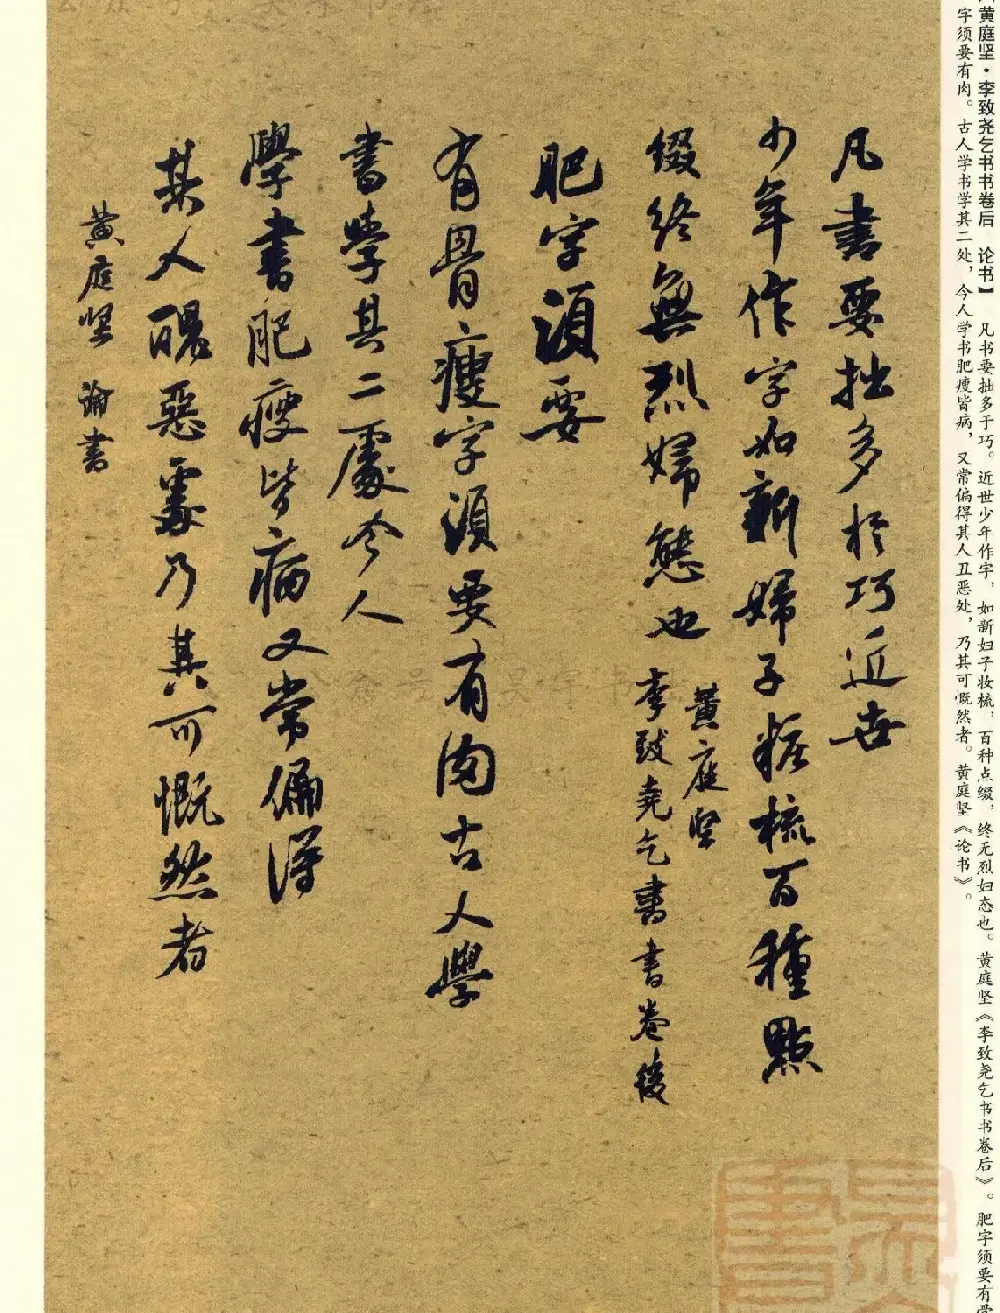 黄庭坚·李致尧乞书书卷后 论书】 凡书要拙多于巧。近世少年作字，如新妇子妆梳，百种点缀，终无烈妇态也。黄庭坚《李致尧乞书书卷后》。肥字须要有骨
字须要有肉。古人学书学其二处，今人学书肥瘦皆病，又常偏得其人丑恶处，乃其可慨然者。黄庭坚《论书》。
凡書要拙多於巧近世
少年作字如新婦子糚梳百種點
綴終無烈婦態也
黄庭坚
李致堯乞書書卷後
肥字須要
有骨瘦字須要有肉古人學
書學其二處今人
學書肥瘦皆病又常偏得
其人醜惡處乃其可慨然者
黄庭坚 論書